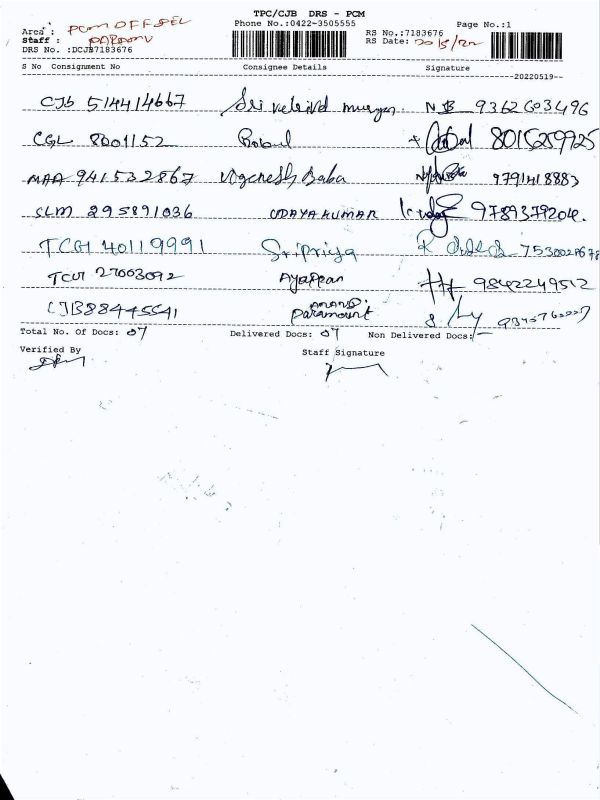 TPC/CJB DRS - PCM
Phone No.:0422-3505555 Page No.:1
Area : PCM OFFSEL RS No.:7183676
Staff : RS Date: 20/5/22
DRS No. :DCJB7183676
S No Consignment No Consignee Details Signature
--20220519--
CJB 514414667 Sri velavd murugan. NB 9362603496
CGL 8001152 Babul 8015289925
MAA 941532867 Vigenesh Baba 9791418883
SLM 295891036 UDAYAKUMAR 9789379204.
TCG1 40119991 Sripriya
TCUT 27003092 Ayappan 9842249512
CJB88445541 ANAND. Paramount
Total No. Of Docs: 07 Delivered Docs: 07 Non Delivered Docs:
Verified By Staff Signature